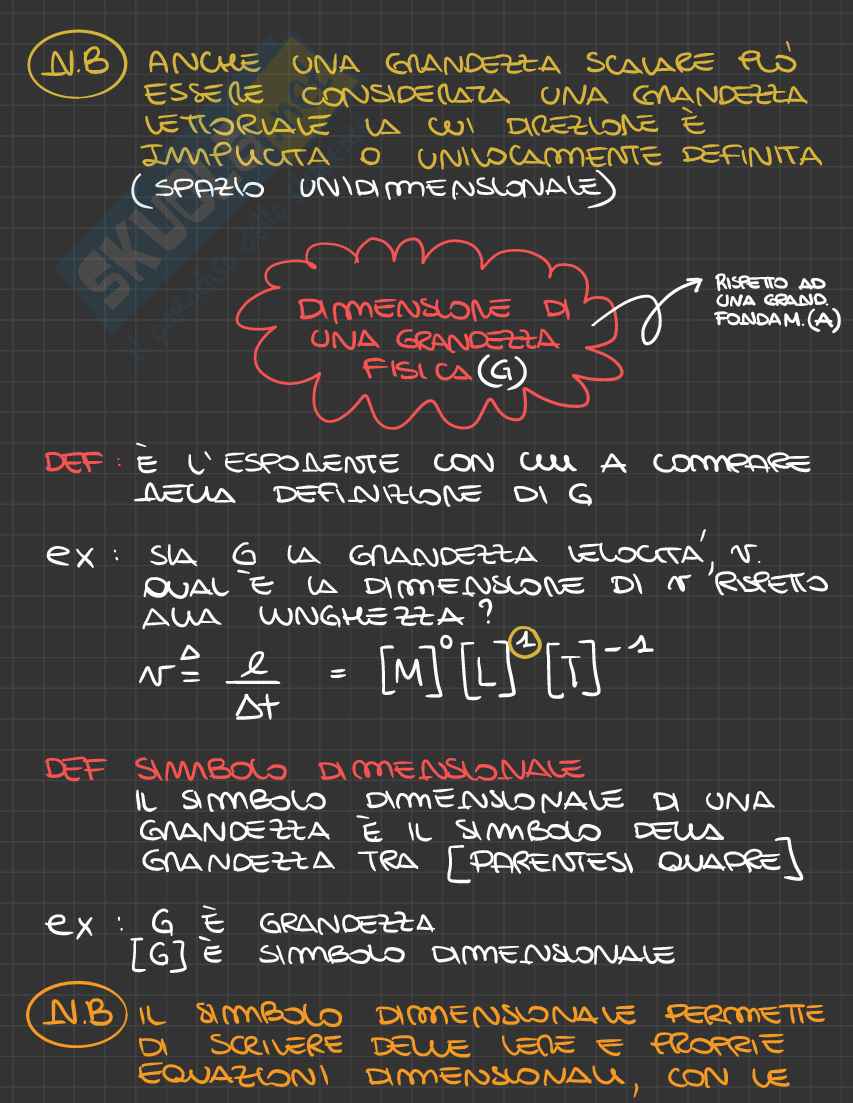 N.B ANCHE UNA GRANDEZZA SCALARE PUÒ
ESSERE CONSIDERATA UNA GRANDEZZA
VETTORIALE LA CUI DIREZIONE È
IMPLICITA O UNIVOCAMENTE DEFINITA
(SPAZIO UNIDIMENSIONALE)
DIMENSIONE DI
UNA GRANDEZZA
FISICA (G)
RISPETTO AD
UNA GRAND.
FONDAM. (A)
DEF : È L'ESPONENTE CON CUI A COMPARE
NELLA DEFINIZIONE DI G
ex : SIA G LA GRANDEZZA VELOCITÀ, v.
QUAL È LA DIMENSIONE DI v RISPETTO
ALLA LUNGHEZZA?
v ≜ l / Δt = [M]⁰ [L]¹ [T]⁻¹
DEF SIMBOLO DIMENSIONALE
IL SIMBOLO DIMENSIONALE DI UNA
GRANDEZZA È IL SIMBOLO DELLA
GRANDEZZA TRA [PARENTESI QUADRE]
ex : G È GRANDEZZA
[G] È SIMBOLO DIMENSIONALE
N.B IL SIMBOLO DIMENSIONALE PERMETTE
DI SCRIVERE DELLE VERE E PROPRIE
EQUAZIONI DIMENSIONALI, CON LE